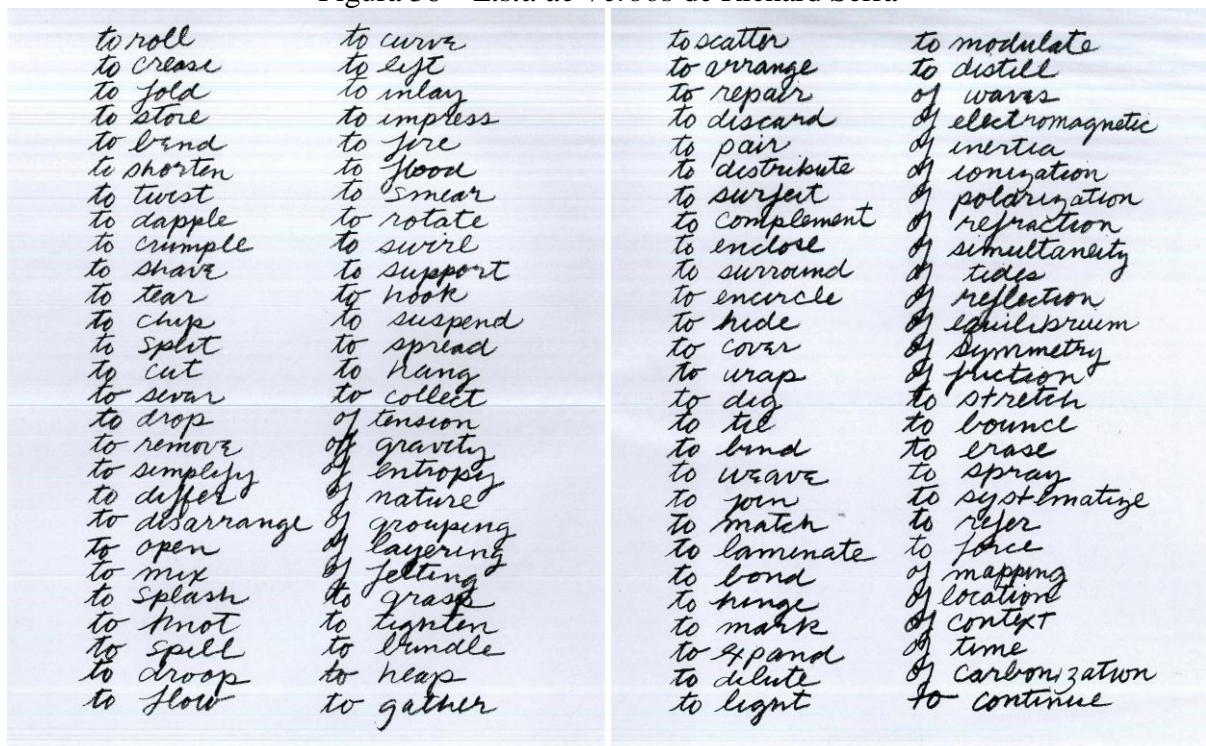 Lista de Verbos de Richard Serra
to roll
to crease
to fold
to store
to bend
to shorten
to twist
to dapple
to crumple
to shave
to tear
to chip
to split
to cut
to sever
to drop
to remove
to simplify
to differ
to disarrange
to open
to mix
to splash
to knot
to spill
to droop
to flow
to curve
to lift
to inlay
to impress
to fire
to flood
to smear
to rotate
to swirl
to support
to hook
to suspend
to spread
to hang
to collect
of tension
of gravity
of entropy
of nature
of grouping
of layering
of felting
to grasp
to tighten
to bundle
to heap
to gather
to scatter
to arrange
to repair
to discard
to pair
to distribute
to surfeit
to complement
to enclose
to surround
to encircle
to hide
to cover
to wrap
to dig
to tie
to bind
to weave
to join
to match
to laminate
to bond
to hinge
to mark
to expand
to dilute
to light
to modulate
to distill
of waves
of electromagnetic
of inertia
of ionization
of polarization
of refraction
of simultaneity
of tides
of reflection
of equilibrium
of symmetry
of friction
to stretch
to bounce
to erase
to spray
to systematize
to refer
to force
of mapping
of location
of context
of time
of carbonization
to continue